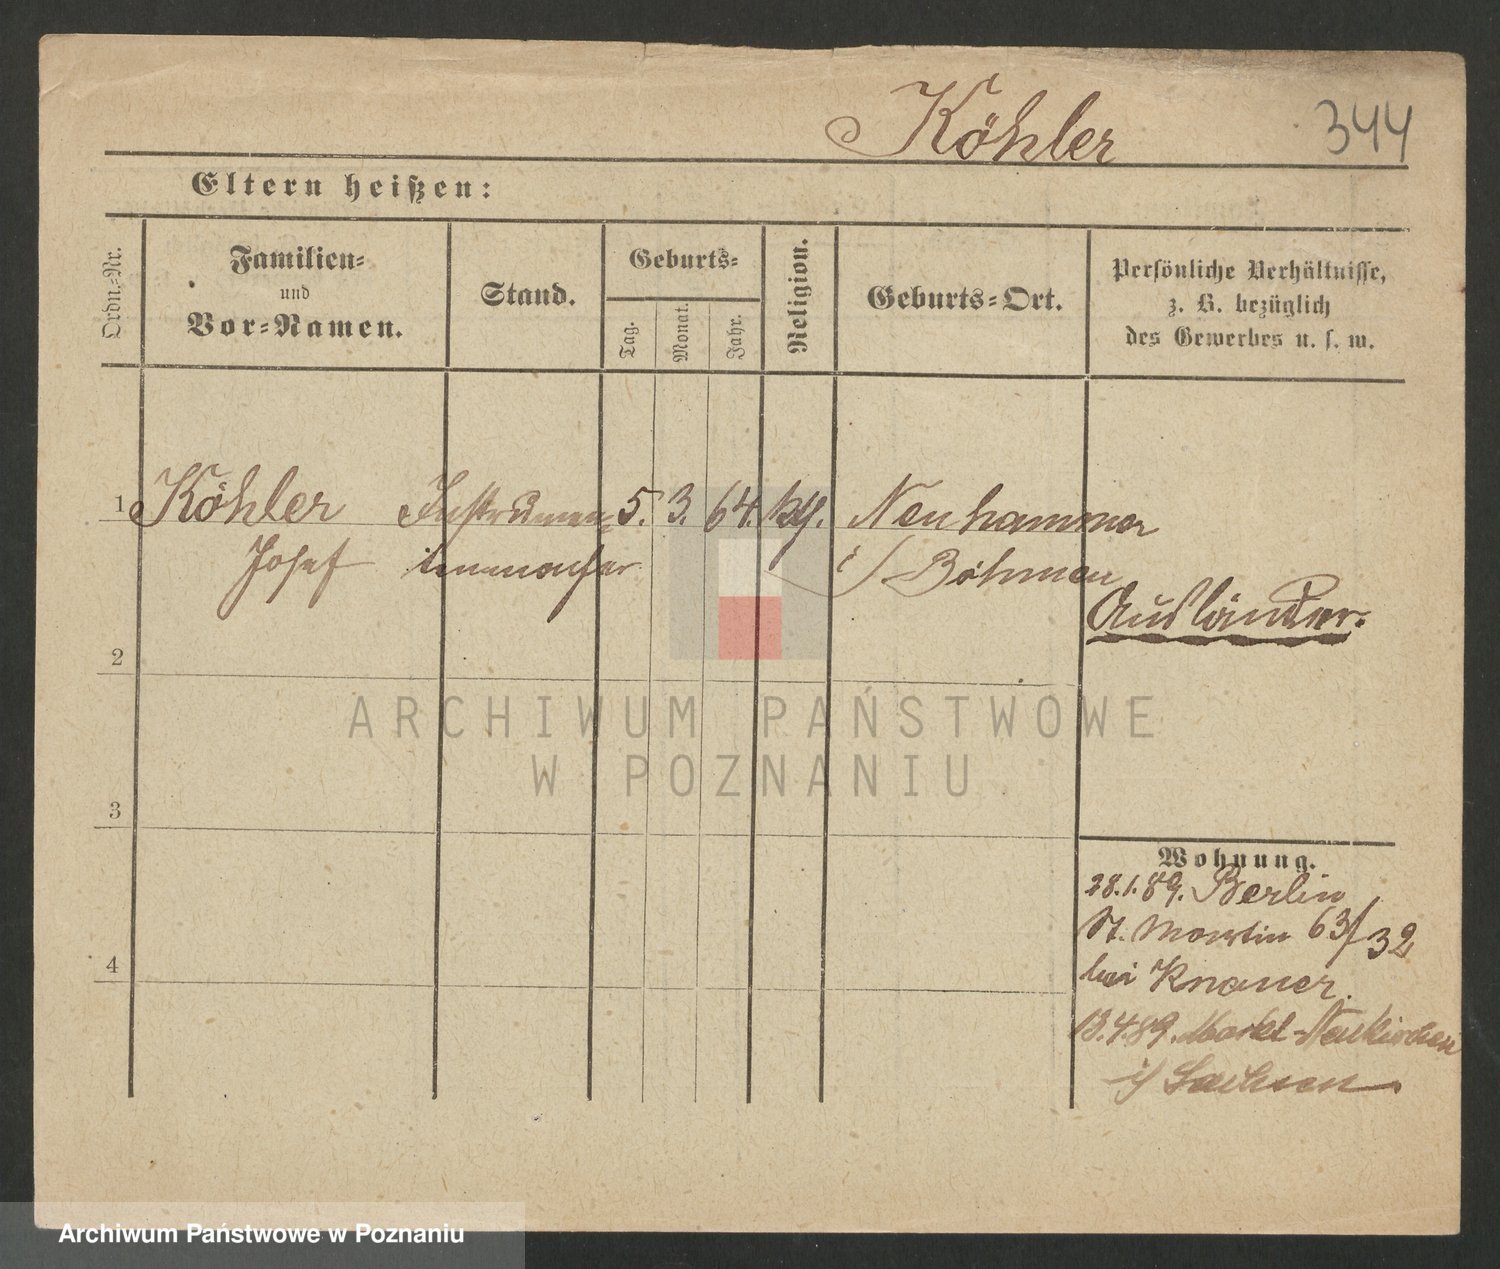 Köhler
344
Eltern heißen:
Ordn.-Nr.
Familien-
und
Vor-Namen.
Stand.
Geburts-
Tag.
Monat.
Jahr.
Religion.
Geburts-Ort.
Persönliche Verhältnisse,
z. B. bezüglich
des Gewerbes u. s. w.
1 Köhler Instrumen- 5. 3. 64. kth. Neuhammer
Josef tenmacher i/ Böhmen
Ausländer.
2
3
4
Wohnung.
28.1.89. Berlin
St. Martin 63/32
bei Knauer.
13.4.89. Markt-Neukirchen
i/ Sachsen
ARCHIWUM PAŃSTWOWE
W POZNANIU
Archiwum Państwowe w Poznaniu